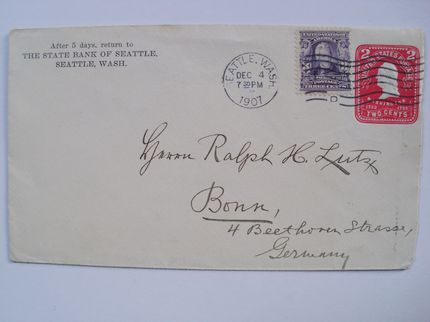 After 5 days, return to
THE STATE BANK OF SEATTLE,
SEATTLE, WASH.
SEATTLE, WASH.
DEC 4
7 30 PM
1907
THREE CENTS
2 2
UNITED STATES
TWO CENTS
Herrn Ralph H. Lutz
Bonn,
4 Beethoven Strasse,
Germany